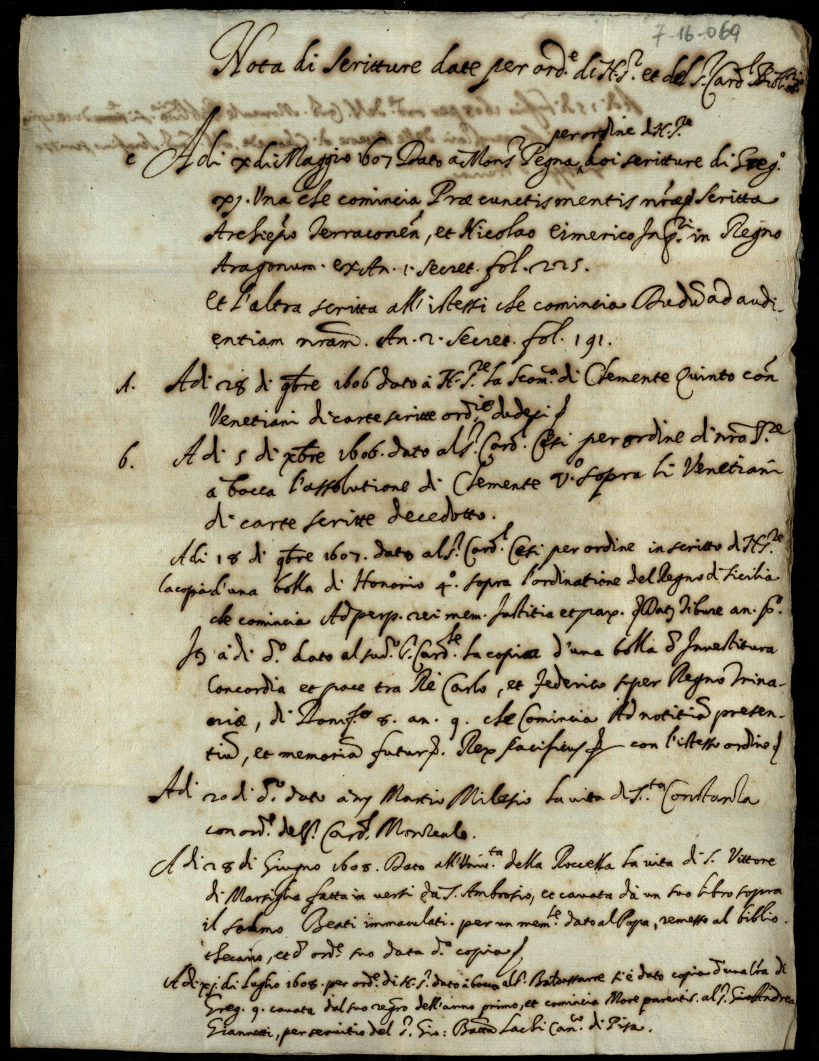 7-16-069
Nota di scritture date per ord.e di N. S.re et del S.r Card.l Biblio
per ordine di N. S.re
c A di x di Maggio 1607 Dato à Mons.r Pegna, doi scritture di Greg.o
xj. Una che comincia Præ cunctis mentis nræ scritta
Archiepo Terraconen, et Nicolao Eimerico Inq.ri in Regno
Aragonum. ex An. 1. Secret. fol. 225.
et l'altra scritta all'istessi che comincia Dudu ad audi-
entiam nram. An. 2. Secret. fol. 191.
A. A di 28 di 9bre 1606 dato à N. S.re la Scom.ca di Clemente Quinto con
Venetiani di carte scritte ord.
6. A di 5 di xbre 1606. dato al S.r Card. Cesi per ordine di nro S.re
a bocca l'assolutione di Clemente V.o sopra li Venetiani
di carte scritte decedotto.
A di 18 di 9bre 1607. dato al S.r Card.l Cesi per ordine in scritto di N. S.re
la copia d'una bolla di Honorio 4.o sopra l'ordinatione del Regno di Sicilia
che comincia Ad perp. rei mem. Justitia et pax. Dat Tibure an. p.o
It à di d.o dato al sud.o S.r Card.le la copia d'una bolla d Investitura
Concordia et pace tra Rè Carlo, et Federico super Regno Trina-
criæ, di Bonif.o 8. an. 9. che Comincia Ad notitia presen-
tiu, et memoria futur. Rex Pacificus con l'istesso ordine
A di 20 di d.o dato a Martio Milesio la vita di S.ta Constantia
con ord.e del S.r Card.l Monreale.
A di 28 di Giugno 1608. Dato all' della Rocella la vita di S. Vittore
di Marsiglia fatta in versi da S. Ambrosio, et cavata da un suo libro sopra
il salmo Beati immaculati. per un mem.le dato al Papa, remesso al biblio-
thecario, et d ord.e suo data d.a copia
A di xj. di Luglio 1608. per ord.e di N. S.re dato à bocca al S.r Baldassarre si è dato copia d'una lra di
Greg. 9. cavata dal suo regro dell'anno primo, et comincia More parentis. al S.r Gio: Andrea
Giannetti, per servitio del S.r Gio: Batta can.co di Pisa.